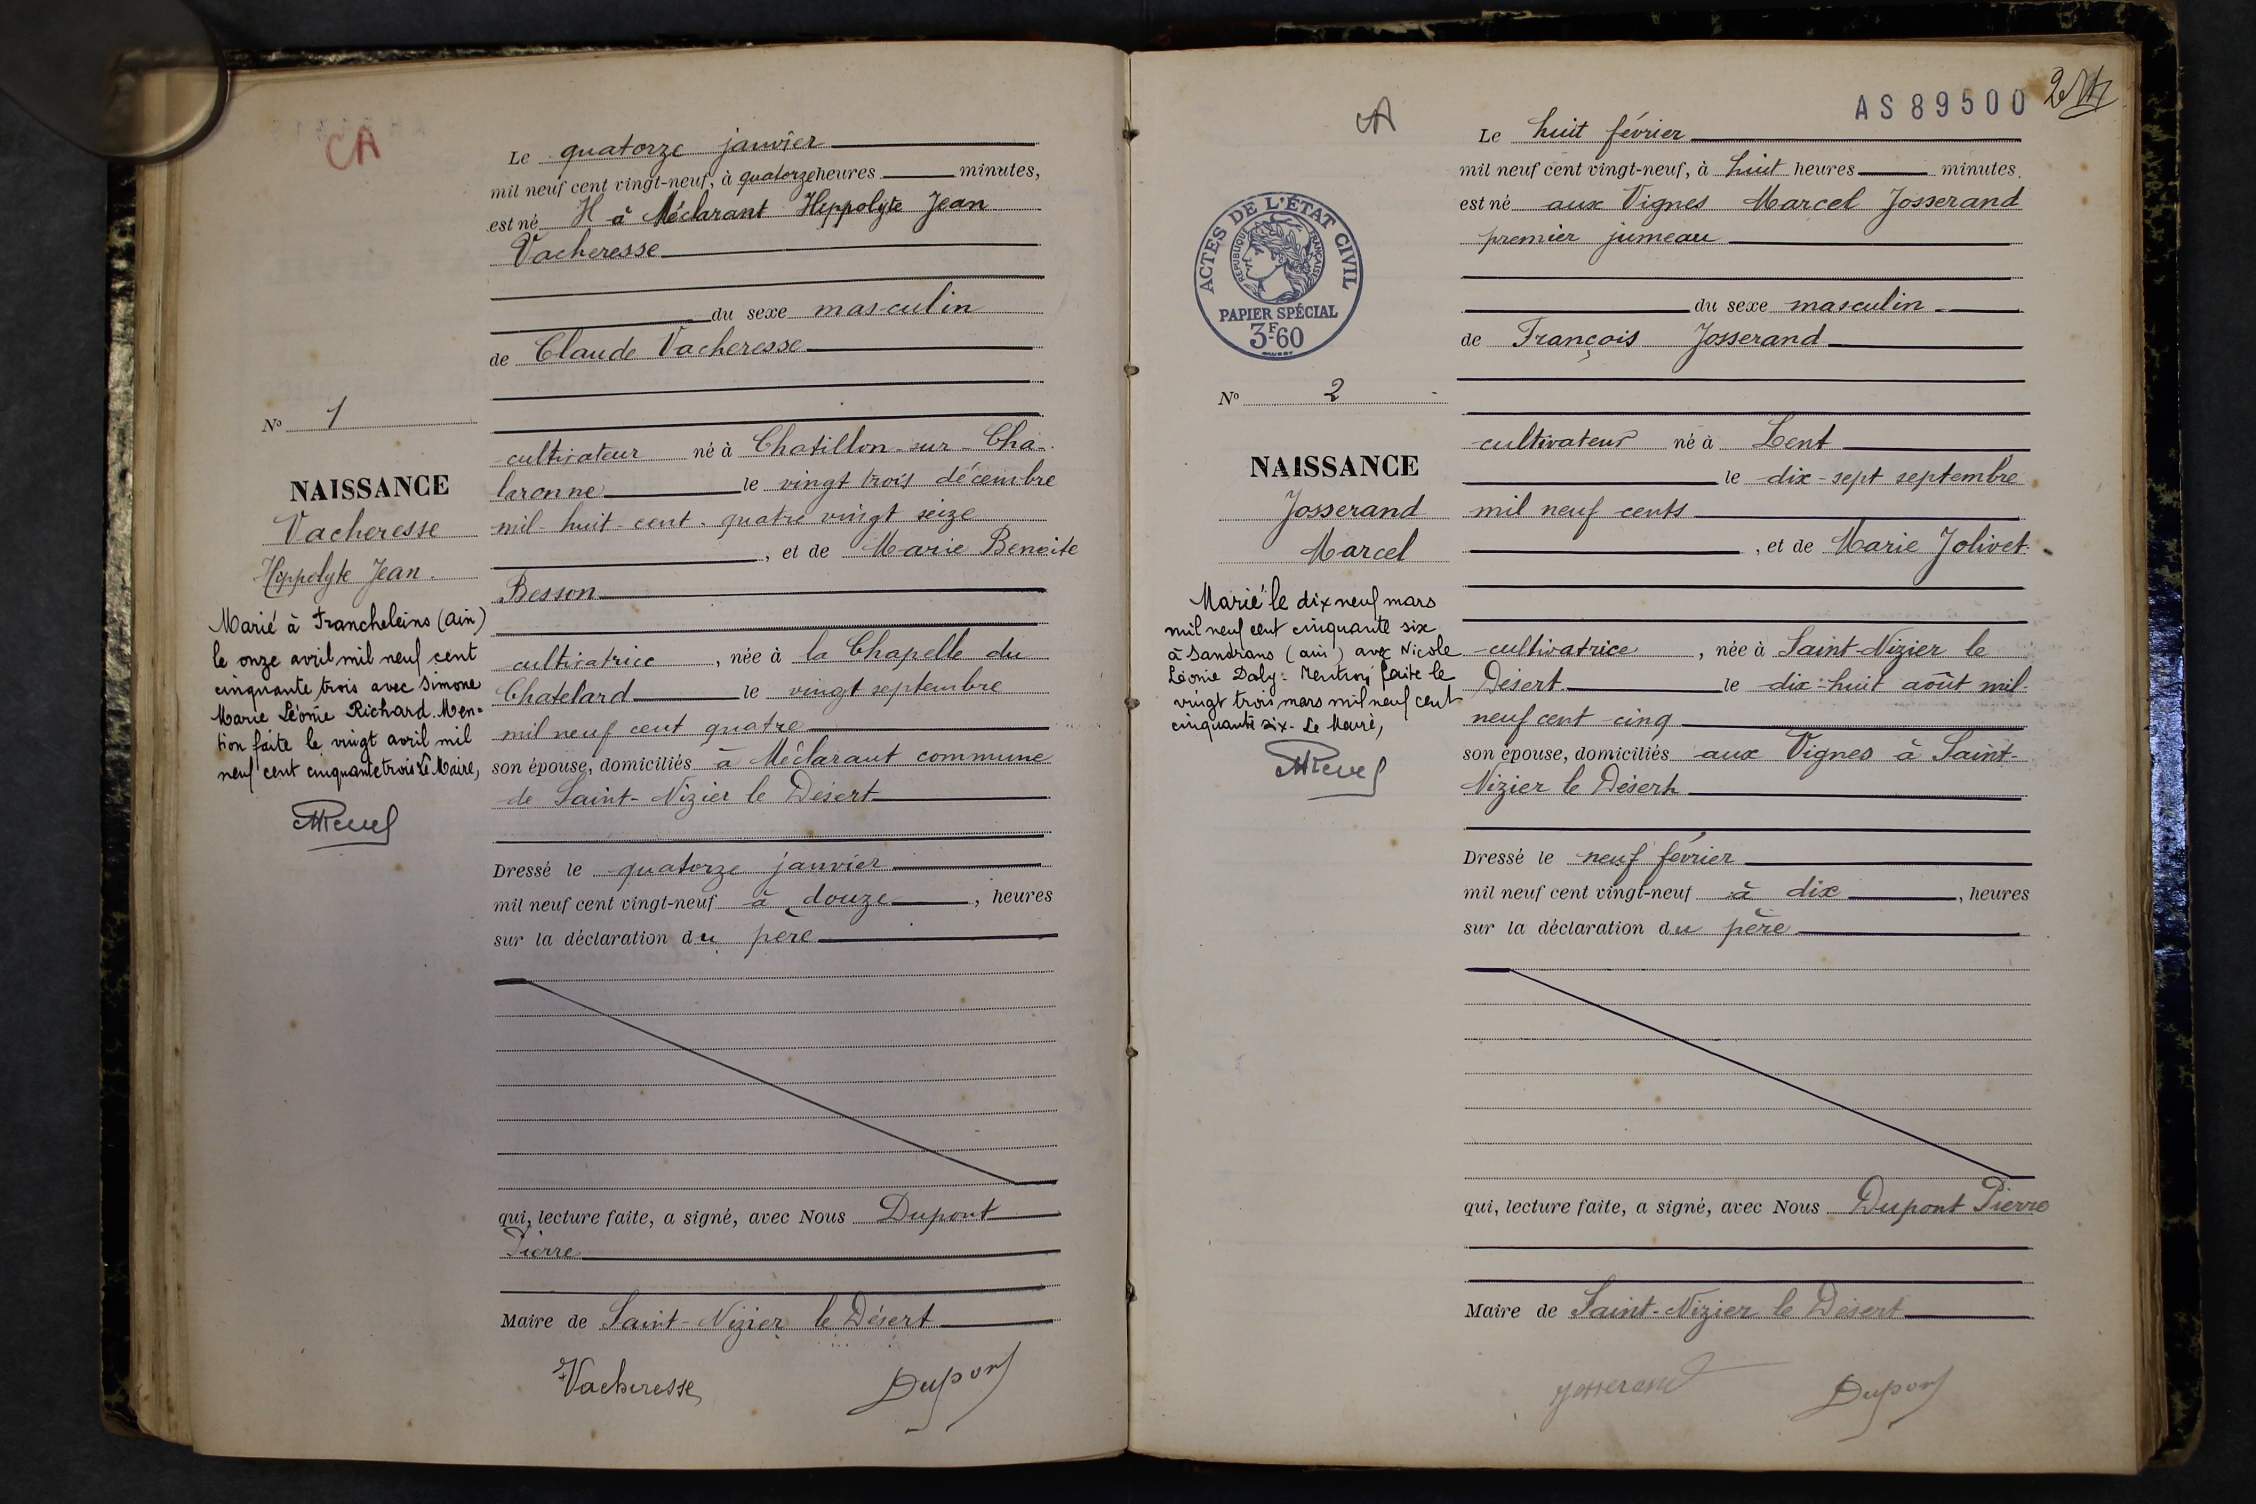 CA
Le quatorze janvier
mil neuf cent vingt-neuf, à quatorze heures minutes,
est né H à Méclarant Hippolyte Jean
Vacheresse
du sexe masculin
de Claude Vacheresse
No 1
cultivateur né à Chatillon-sur-Cha-
laronne le vingt trois décembre
mil-huit-cent-quatre vingt seize
, et de Marie Benoite
Besson
cultivatrice, née à la Chapelle du
Chatelard le vingt septembre
mil neuf cent quatre
son épouse, domiciliés à Méclarant commune
de Saint-Nizier le Désert
Dressé le quatorze janvier
mil neuf cent vingt-neuf à douze, heures
sur la déclaration du père
qui, lecture faite, a signé, avec Nous Dupont
Pierre
Maire de Saint-Nizier le Désert
Vacheresse Dupont
NAISSANCE
Vacheresse
Hippolyte Jean.
Marié à Francheleins (Ain)
le onze avril mil neuf cent
cinquante trois avec Simone
Marie Léonie Richard. Men-
tion faite le vingt avril mil
neuf cent cinquante trois Le Maire,
CA
AS 89500
2
Le huit février
mil neuf cent vingt-neuf, à huit heures minutes.
est né aux Vignes Marcel Josserand
premier jumeau
du sexe masculin
de François Josserand
cultivateur né à Lent
le dix-sept septembre
mil neuf cents
, et de Marie Jolivet
cultivatrice, née à Saint-Nizier le
Désert le dix-huit août mil-
neuf cent cinq
son épouse, domiciliés aux Vignes à Saint-
Nizier le Désert
Dressé le neuf février
mil neuf cent vingt-neuf à dix, heures
sur la déclaration du père
qui, lecture faite, a signé, avec Nous Dupont Pierre
Maire de Saint-Nizier le Désert
Josserand Dupont
ACTES DE L'ÉTAT CIVIL
RÉPUBLIQUE FRANÇAISE
PAPIER SPÉCIAL
3F60
No 2
NAISSANCE
Josserand
Marcel
Marié le dix neuf mars
mil neuf cent cinquante six
à Sandrans (ain) avec Nicole
Léonie Daly: faite le
vingt trois mars mil neuf cent
cinquante six - Le Maire,